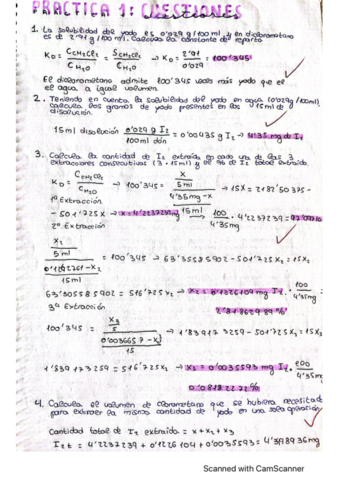 PRACTICA 1: CUESTIONES
1. La solubilidad del yodo es 0'029 g/100ml, y en diclorometano
es de 2'91 g/100 ml. Calcula la constante de reparto
KD = C CH2Cl2 / C H2O = S CH2Cl2 / C H2O → KD = 2'91 / 0'029 = 100'345
El diclorometano admite 100'345 veces más yodo que el
el agua a igual volumen.
2. Teniendo en cuenta la solubilidad del yodo en agua (0'029g/100ml)
calcula los gramos de yodo presentes en los 15ml de la
disolución.
15ml disolución 0'029 g I2 / 100ml dón = 0'00435 g I2 → 4'35 mg de I2
3. Calcula la cantidad de I2 extraída en cada una de las 3
extracciones consecutivas (3 · 15ml) y el % de I2 total extraído.
KD = C CH2Cl2 / C H2O → 100'345 = X / 5ml / 4'35mg - X / 15ml → 15X = 2182'50375 -
1ª Extracción
- 501'725X → X = 4'2237239mg · 100 / 4'35mg · 4'2237239 =
2ª Extracción
X2 / 5ml / 0'1262761 - X2 / 15ml = 100'345 → 63'35585902 - 501'725X2 = 15X2
63'35585902 = 516'725X2 → X2 = 0'1226104 mg I2 · 100 / 4'35mg =
3ª Extracción
100'345 = X3 / 5 / 0'0036657 - X3 / 15 → 1'839173259 - 501'725X3 = 15X3
1'839173259 = 516'725X2 → X3 = 0'0035593 mg I2 · 100 / 4'35mg
0'0818227%
4. Calcula el volumen de clorometano que se hubiera necesitado
para extraer la misma cantidad de yodo en una sola operación
Cantidad total de I2 extraída = X + X2 + X3
I2t = 4'2237239 + 0'1226104 + 0'0035593 = 4'3498936mg
Scanned with CamScanner